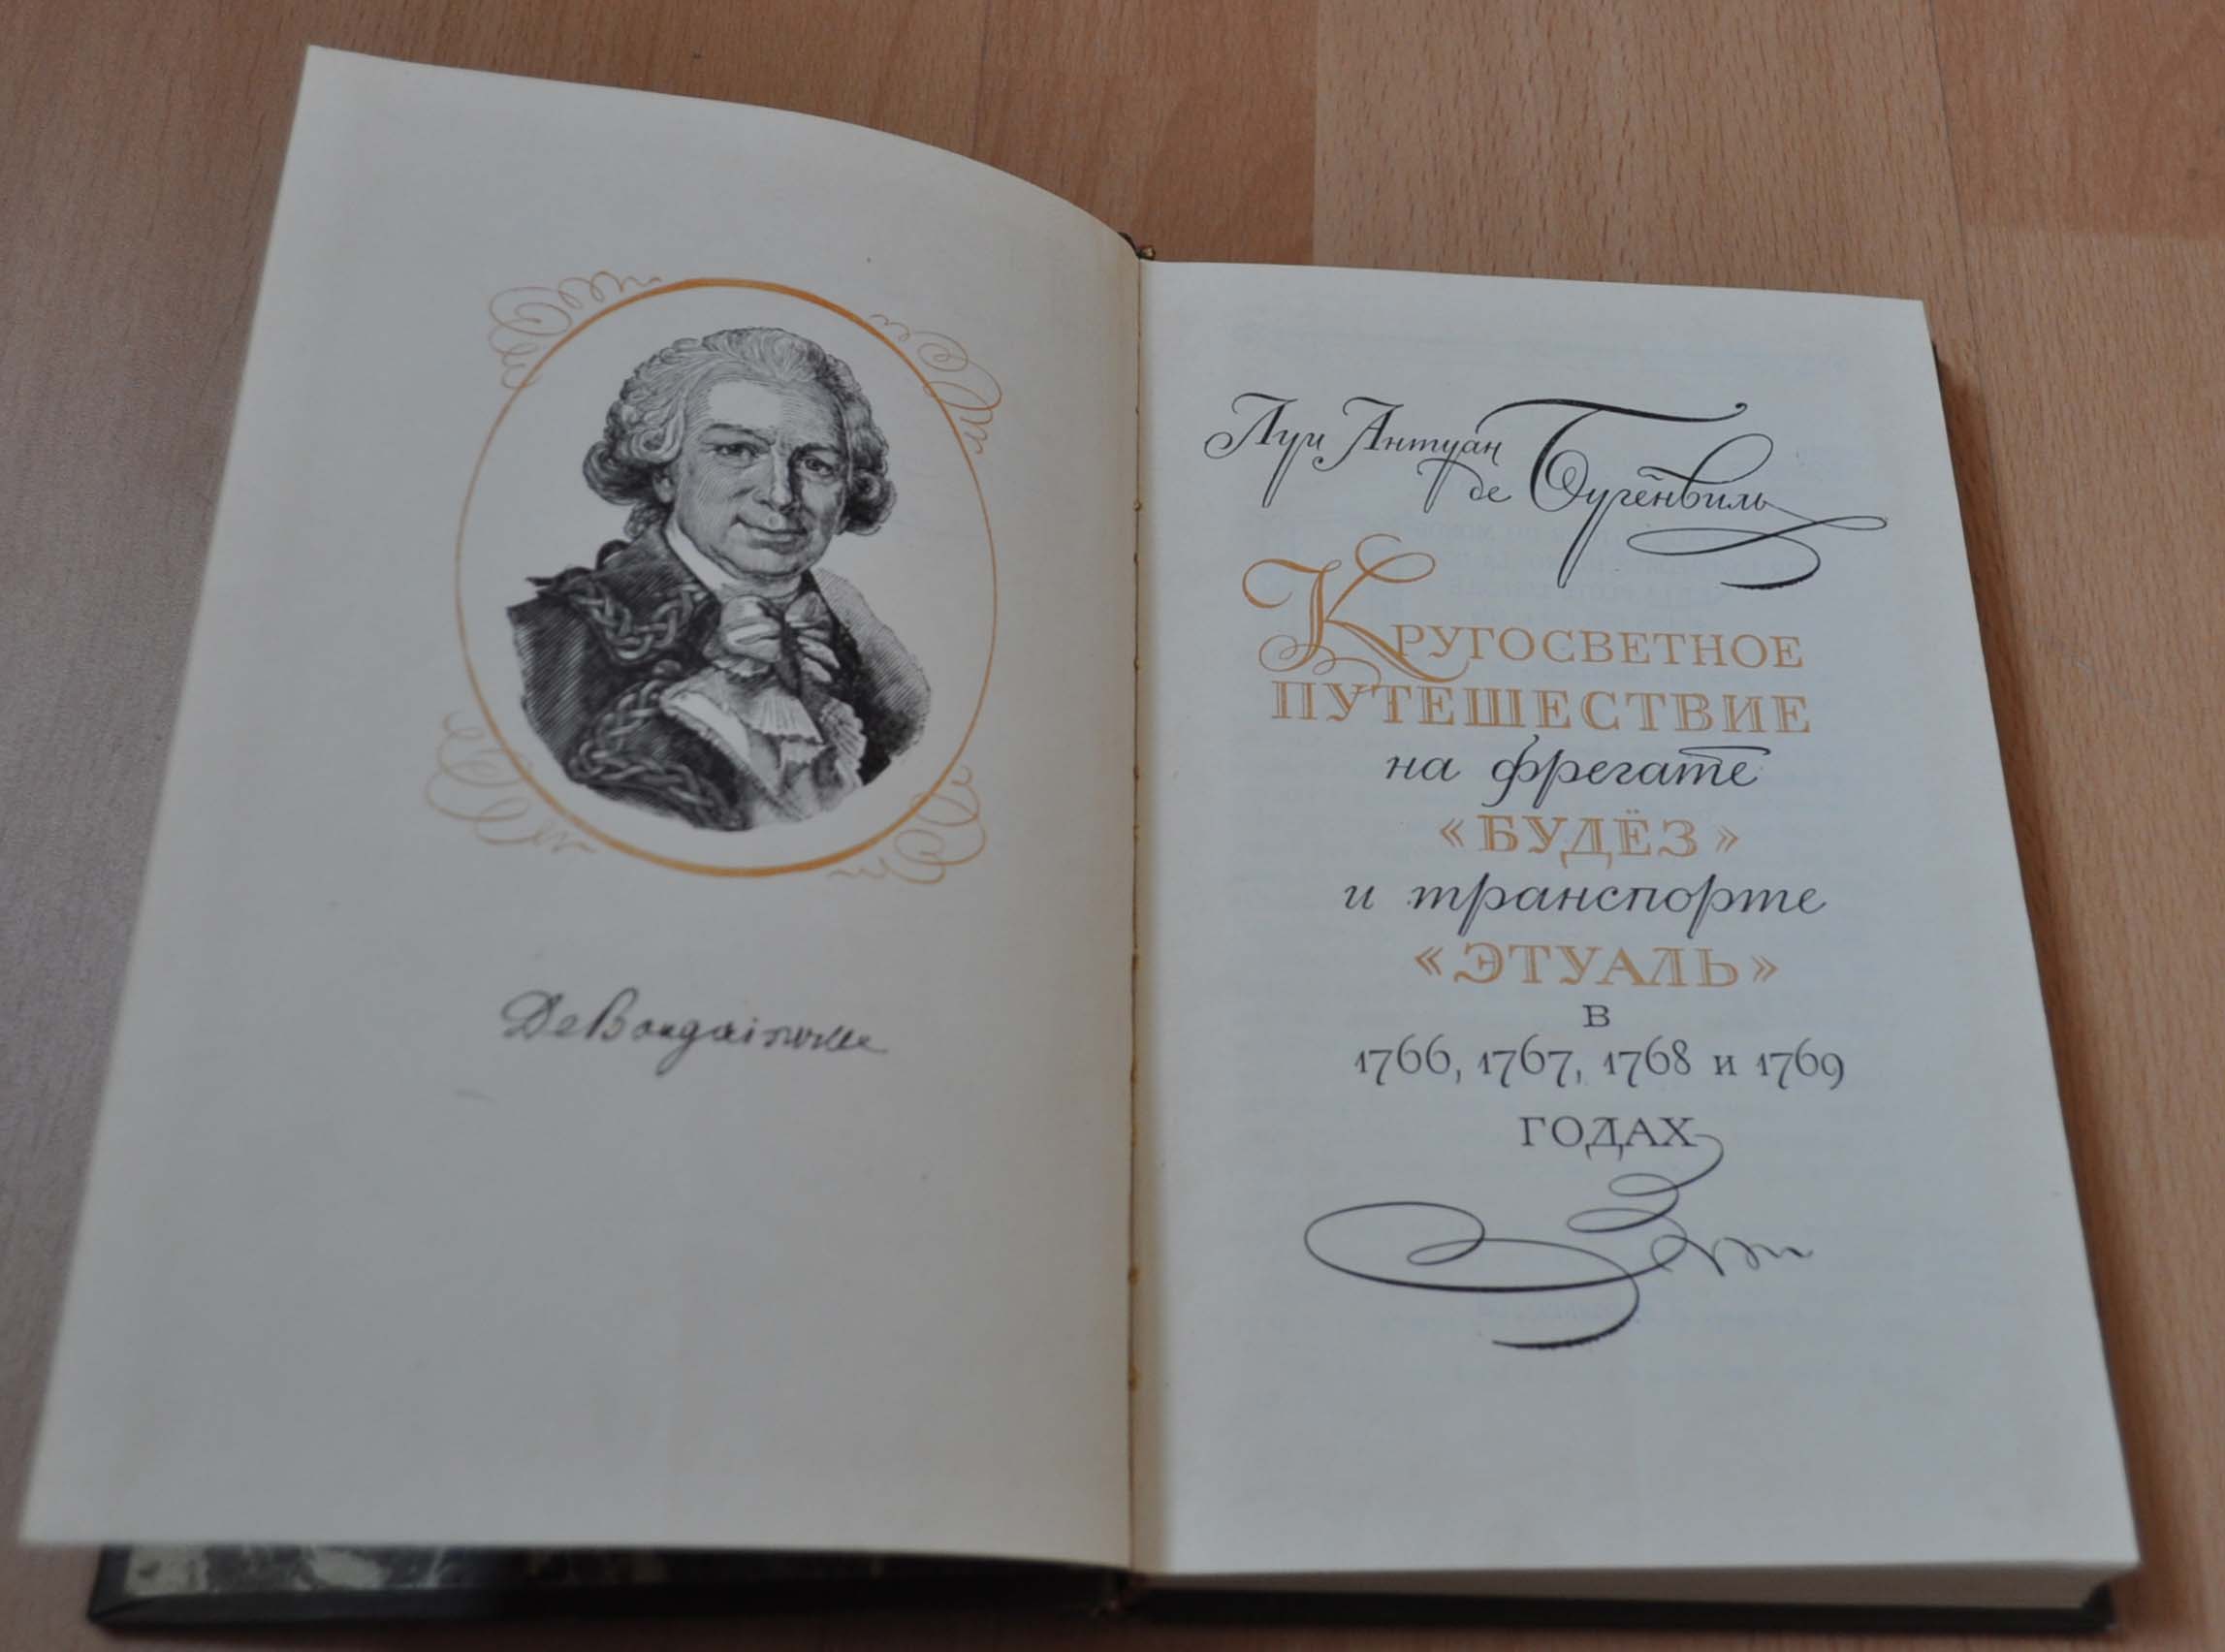 De Bougainville
Луи Антуан
де Бугенвиль
КРУГОСВЕТНОЕ
ПУТЕШЕСТВИЕ
на фрегате
«БУДЁЗ»
и транспорте
«ЭТУАЛЬ»
в
1766, 1767, 1768 и 1769
ГОДАХ